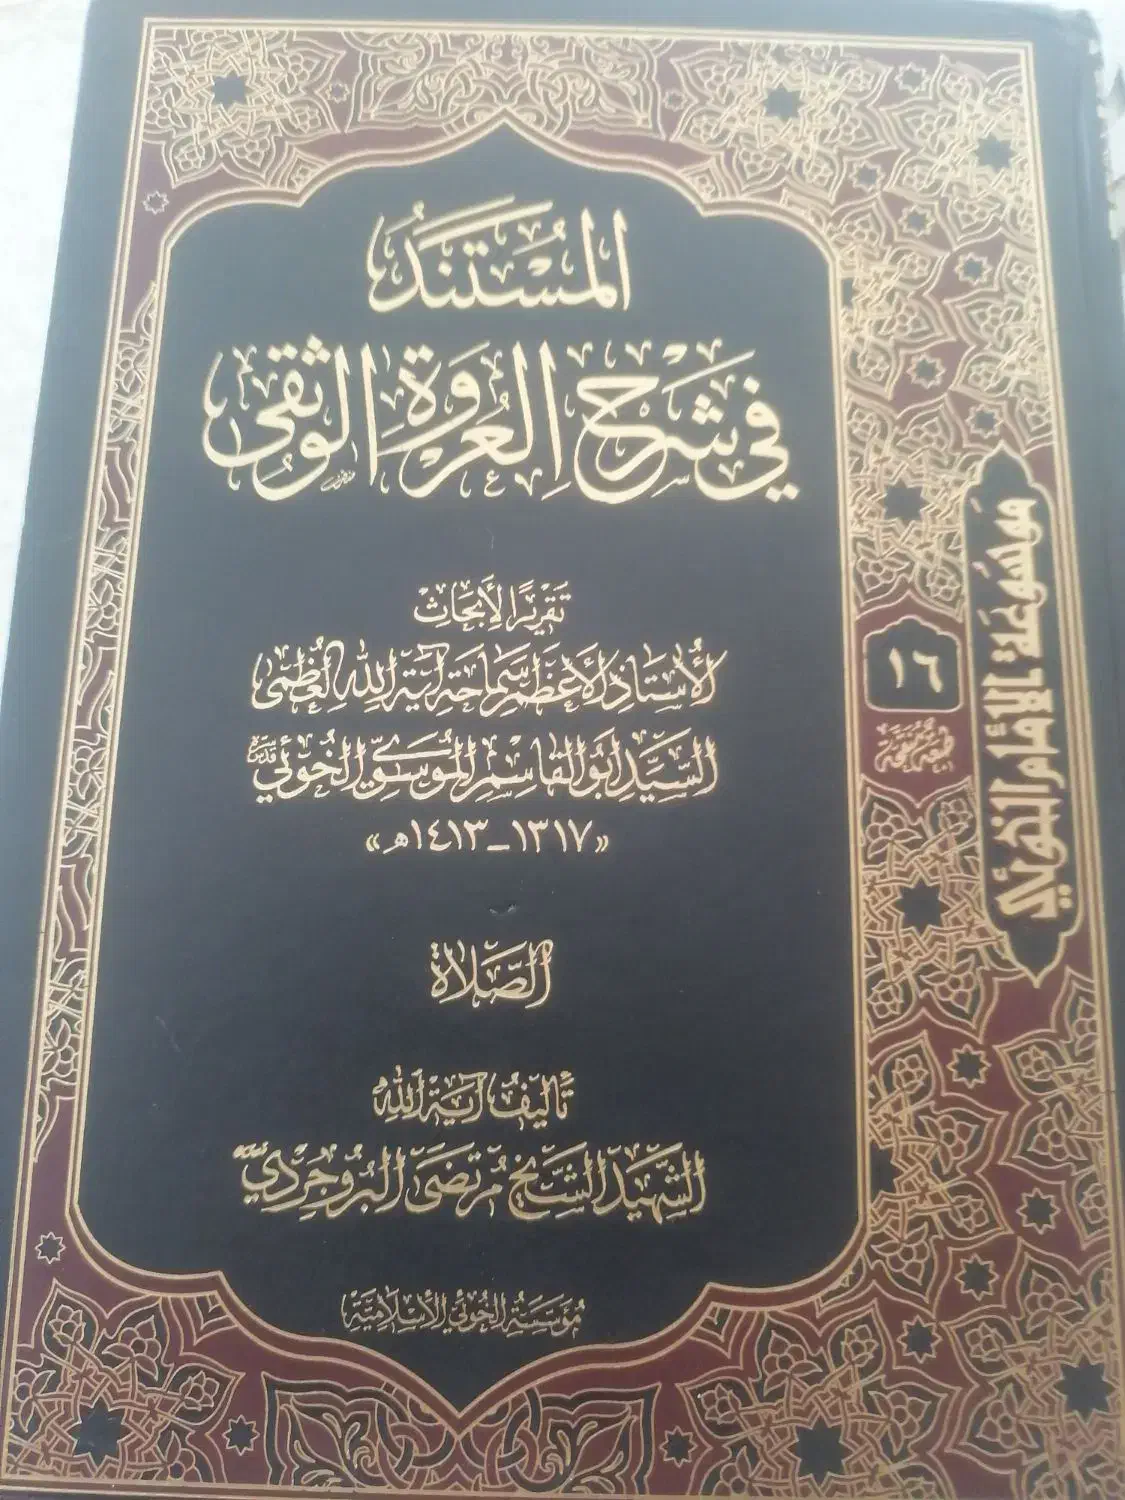 المُسْتَنَدُ
في شَرْحِ العُرْوَةِ الوُثْقى
تَقْرِيرًا لِأَبْحَاثِ
الأُسْتَاذِ الأَعْظَمِ سَمَاحَةِ آيَةِ اللهِ العُظْمَى
السَّيِّدِ أَبُو القَاسِمِ المُوسَوِيِّ الخُوئِي
«١٣١٧ - ١٤١٣ هـ»
الصَّلَاة
تَأْلِيفُ آيَةِ اللهِ
الشَّهِيدِ الشَّيْخِ مُرْتَضَى البُرُوجِرْدِي
مُؤَسَّسَةُ الخُوئِي الإِسْلَامِيَّة
مَوسُوعَة الإمَام الخُوئي
١٦
طبعة منقحة